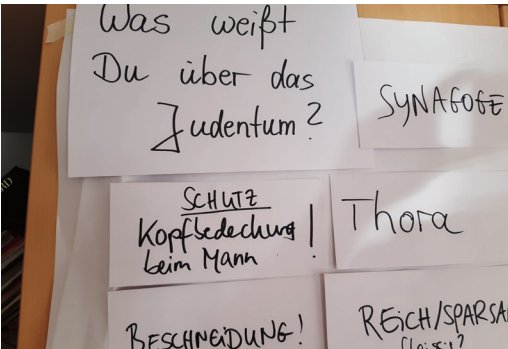 Was weißt
Du über das
Judentum?
SYNAGOGE
SCHUTZ
Kopfbedeckung!
beim Mann
Thora
BESCHNEIDUNG!
REICH/SPARSA